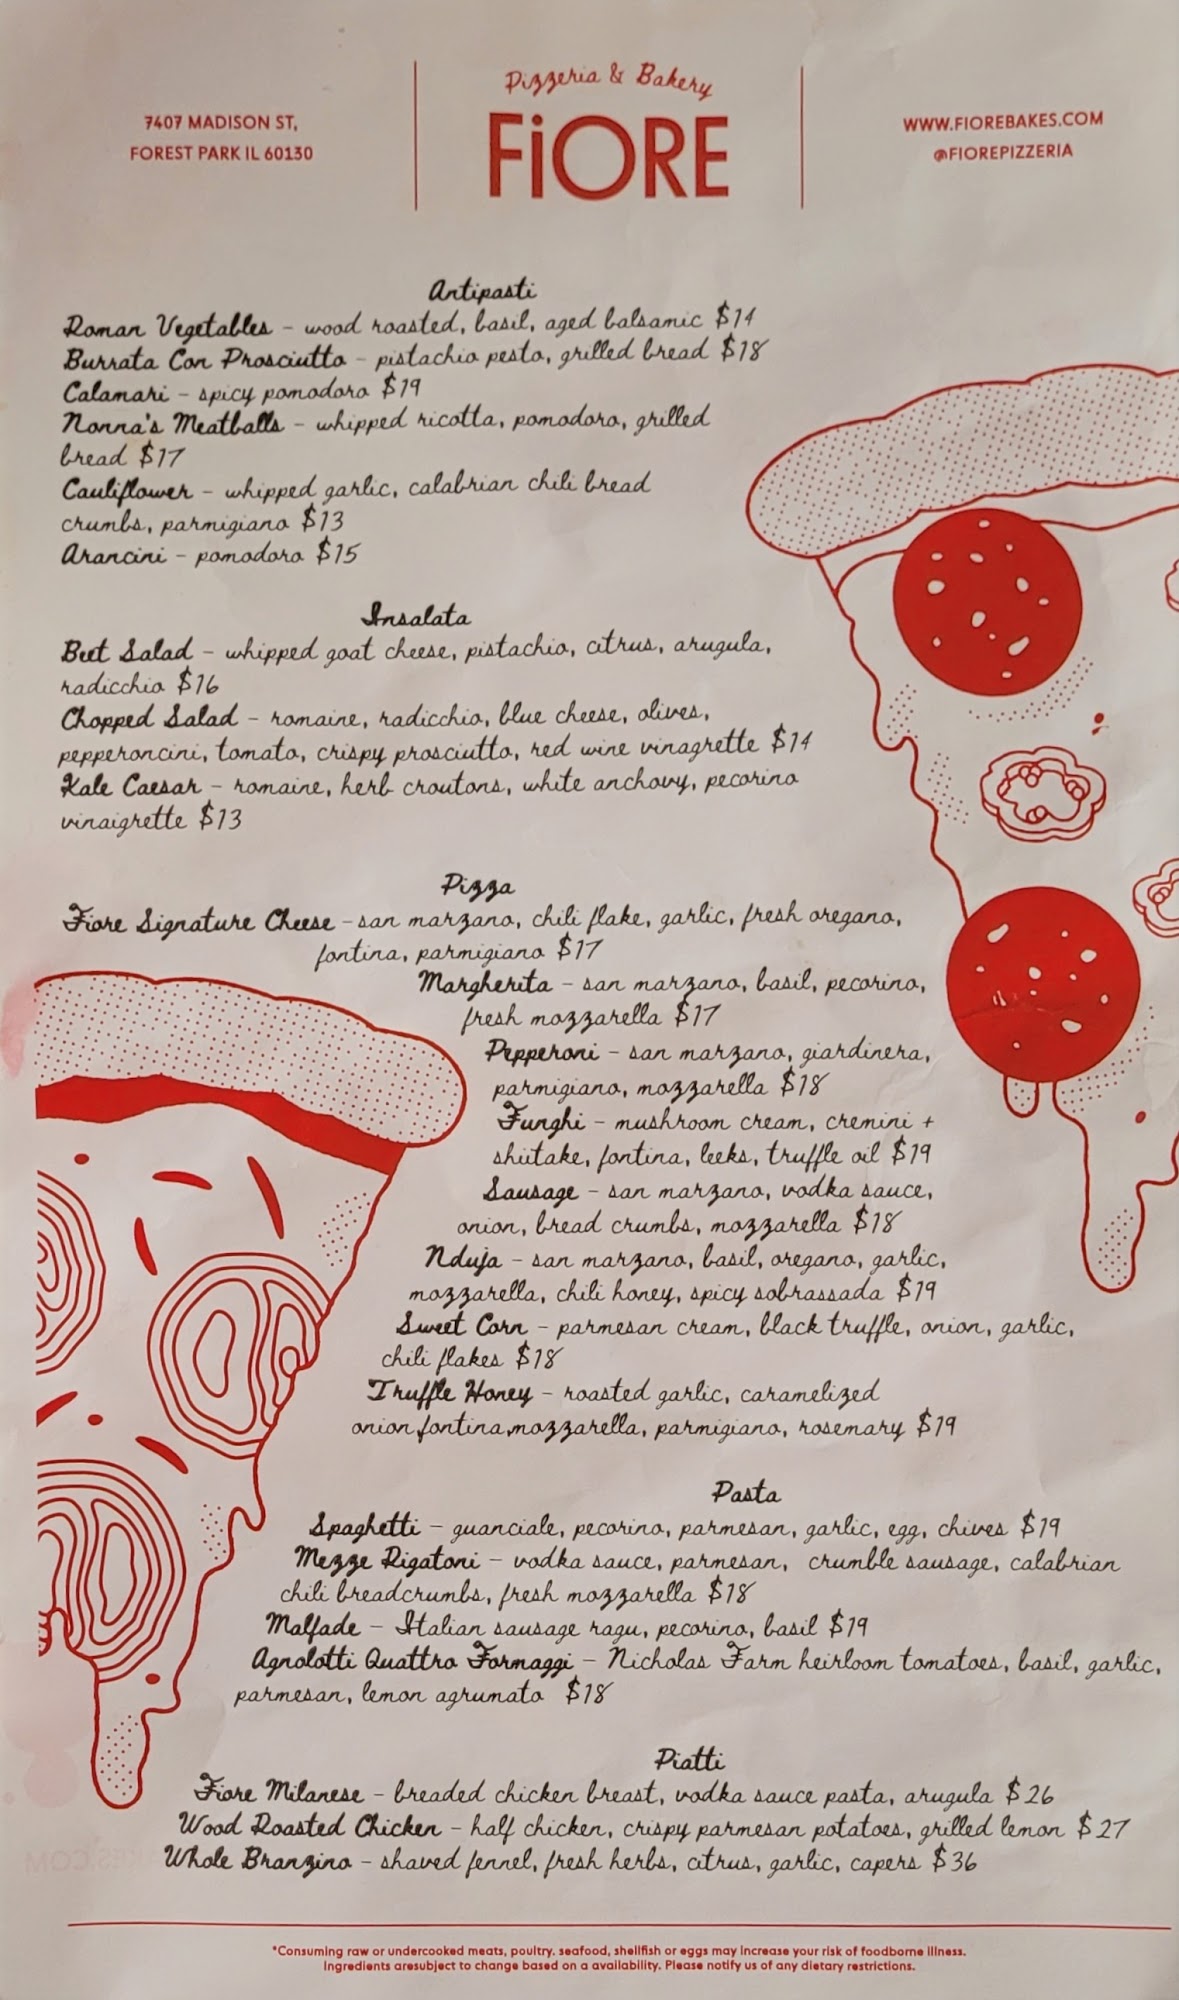 Pizzeria & Bakery
FiORE
7407 MADISON ST,
FOREST PARK IL 60130
WWW.FIOREBAKES.COM
@FIOREPIZZERIA
Antipasti
Roman Vegetables - wood roasted, basil, aged balsamic $14
Burrata Con Prosciutto - pistachio pesto, grilled bread $18
Calamari - spicy pomodoro $19
Nonna's Meatballs - whipped ricotta, pomodoro, grilled
bread $17
Cauliflower - whipped garlic, calabrian chili bread
crumbs, parmigiano $13
Arancini - pomodoro $15
Insalata
Beet Salad - whipped goat cheese, pistachio, citrus, arugula,
radicchio $16
Chopped Salad - romaine, radicchio, blue cheese, olives,
pepperoncini, tomato, crispy prosciutto, red wine vinagrette $14
Kale Caesar - romaine, herb croutons, white anchovy, pecorino
vinaigrette $13
Pizza
Fiore Signature Cheese - san marzano, chili flake, garlic, fresh oregano,
fontina, parmigiano $17
Margherita - san marzano, basil, pecorino,
fresh mozzarella $17
Pepperoni - san marzano, giardinera,
parmigiano, mozzarella $18
Funghi - mushroom cream, cremini +
shiitake, fontina, leeks, truffle oil $19
Sausage - san marzano, vodka sauce,
onion, bread crumbs, mozzarella $18
Nduja - san marzano, basil, oregano, garlic,
mozzarella, chili honey, spicy sobrassada $19
Sweet Corn - parmesan cream, black truffle, onion, garlic,
chili flakes $18
Truffle Honey - roasted garlic, caramelized
onion,fontina,mozzarella, parmigiano, rosemary $19
Pasta
Spaghetti - guanciale, pecorino, parmesan, garlic, egg, chives $19
Mezze Rigatoni - vodka sauce, parmesan, crumble sausage, calabrian
chili breadcrumbs, fresh mozzarella $18
Malfade - Italian sausage ragu, pecorino, basil $19
Agnolotti Quattro Formaggi - Nicholas Farm heirloom tomatoes, basil, garlic,
parmesan, lemon agrumato $18
Piatti
Fiore Milanese - breaded chicken breast, vodka sauce pasta, arugula $26
Wood Roasted Chicken - half chicken, crispy parmesan potatoes, grilled lemon $27
Whole Branzino - shaved fennel, fresh herbs, citrus, garlic, capers $36
*Consuming raw or undercooked meats, poultry, seafood, shellfish or eggs may increase your risk of foodborne illness.
Ingredients aresubject to change based on a availability. Please notify us of any dietary restrictions.